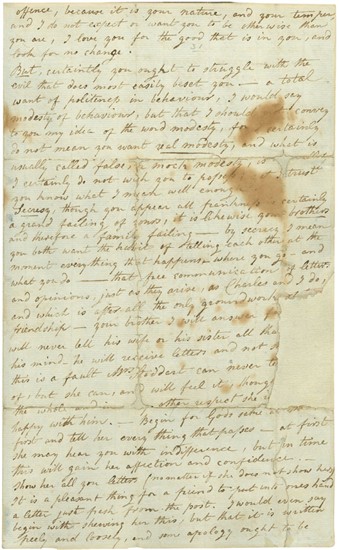 offence, because it is your nature, and your temper
and I do not expect or want you to be otherwise than
you are, I love you for the good that is in you, and
look for no change.
But, certainly you ought to struggle with the
evil that does most easily beset you — a total
want of politeness in behaviour, I would say
modesty of behaviour, but that I should not convey
to you my idea of the word modesty, for I certainly
do not mean you want real modesty, and what is
usually called false, or mock modesty, is
I certainly do not wish you to possess, I trust
you know what I mean well enough.
Secresy, though you appear all frankness, is certainly
a grand failing of yours, it is likewise your brothers
and therefore a family failing — by secresy I mean
you both want the habit of telling each other at the
moment every thing that happens — where you go — and
what you do — that free communication of letters
and opinions, just as they arise, as Charles and I do,
and which is after all the only groundwork of
friendship — your brother I will answer for
will never tell his wife or his sister all that
his mind — he will receive letters and not
this is a fault Mrs Stoddart can never
of but she can, and will feel it, though
the whole, and in other respect she is
happy with him. — Begin for Gods sake at
first and tell her every thing that passes — at first
she may hear you with indifference, but in time
this will gain her affection and confidence —
show her all your letters (no matter if she does not show hers)
it is a pleasant thing for a friend to put into ones hand
a letter just fresh from the post. I would even say
begin with shewing her this, but that it is written
freely and loosely, and some apology ought to be